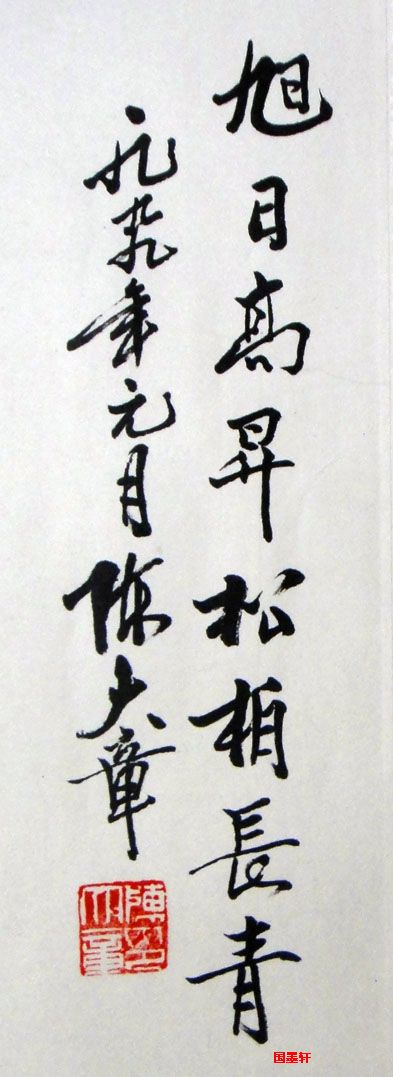 旭日高昇松柏長青
一九九九年元月陳大章
陳印大章
国墨轩